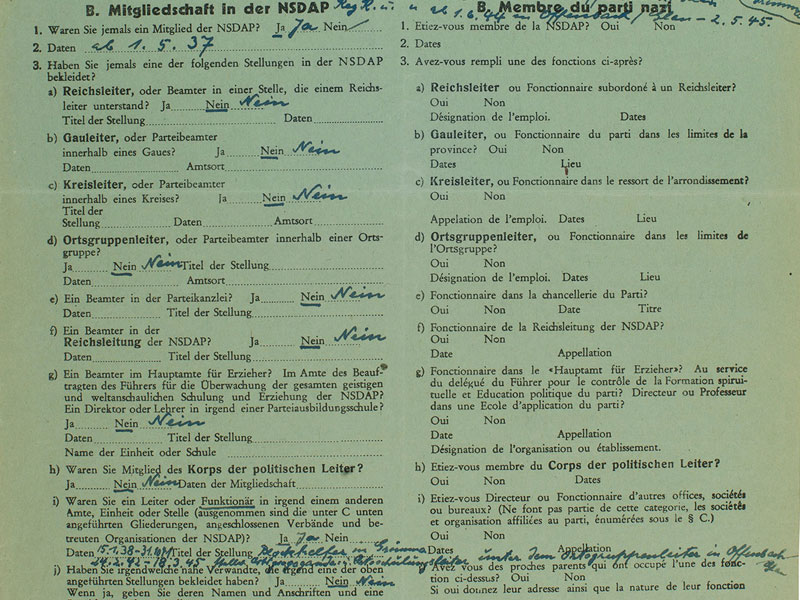 B. Mitgliedschaft in der NSDAP
1. Waren Sie jemals ein Mitglied der NSDAP? Ja Ja Nein
2. Daten ab 1. 5. 37
3. Haben Sie jemals eine der folgenden Stellungen in der NSDAP
bekleidet?
a) Reichsleiter, oder Beamter in einer Stelle, die einem Reichs-
leiter unterstand? Ja Nein Nein
Titel der Stellung Daten
b) Gauleiter, oder Parteibeamter
innerhalb eines Gaues? Ja Nein Nein
Daten Amtsort
c) Kreisleiter, oder Parteibeamter
innerhalb eines Kreises? Ja Nein Nein
Titel der
Stellung Daten Amtsort
d) Ortsgruppenleiter, oder Parteibeamter innerhalb einer Orts-
gruppe?
Ja Nein Nein Titel der Stellung
Daten Amtsort
e) Ein Beamter in der Parteikanzlei? Ja Nein Nein
Daten Titel der Stellung
f) Ein Beamter in der
Reichsleitung der NSDAP? Ja Nein Nein
Daten Titel der Stellung
g) Ein Beamter im Hauptamte für Erzieher? Im Amte des Beauf-
tragten des Führers für die Überwachung der gesamten geistigen
und weltanschaulichen Schulung und Erziehung der NSDAP?
Ein Direktor oder Lehrer in irgend einer Parteiausbildungsschule?
Ja Nein Nein
Daten Titel der Stellung
Name der Einheit oder Schule
h) Waren Sie Mitglied des Korps der politischen Leiter?
Ja Nein Nein Daten der Mitgliedschaft
i) Waren Sie ein Leiter oder Funktionär in irgend einem anderen
Amte, Einheit oder Stelle (ausgenommen sind die unter C unten
angeführten Gliederungen, angeschlossenen Verbände und be-
treuten Organisationen der NSDAP)? Ja Ja Nein
Daten 15.1.38-31. Titel der Stellung Blockhelfer in Grimma
24.2.42 - 18.3.45 unter dem Ortsgruppenleiter in Offenbach
j) Haben Sie irgendwelche nahe Verwandte, die irgend eine der oben
angeführten Stellungen bekleidet haben? Ja Nein Nein
Wenn ja, geben Sie deren Namen und Anschriften und eine
ab 1.6.44 in Offenbach - 2.5.45.
B. Membre du parti nazi
1. Etiez-vous membre de la NSDAP? Oui Non
2. Dates
3. Avez-vous rempli une des fonctions ci-après?
a) Reichsleiter ou Fonctionnaire subordoné à un Reichsleiter?
Oui Non
Désignation de l'emploi. Dates
b) Gauleiter, ou Fonctionnaire du parti dans les limites de la
province? Oui Non
Dates Lieu
c) Kreisleiter, ou Fonctionnaire dans le ressort de l'arrondissement?
Oui Non
Appelation de l'emploi. Dates Lieu
d) Ortsgruppenleiter, ou Fonctionnaire dans les limites de
l'Ortsgruppe?
Oui Non
Désignation de l'emploi. Dates Lieu
e) Fonctionnaire dans la chancellerie du Parti?
Oui Non Date Titre
f) Fonctionnaire de la Reichsleitung der NSDAP?
Oui Non
Date Appellation
g) Fonctionnaire dans le «Hauptamt für Erzieher»? Au service
du délégué du Führer pour le contrôle de la Formation spirui-
tuelle et Education politique du parti? Directeur ou Professeur
dans une Ecole d'application du parti?
Oui Non
Date Appellation
Désignation de l'organisation ou établissement.
h) Etiez-vous membre du Corps der politischen Leiter?
Oui Non Dates
i) Etiez-vous Directeur ou Fonctionnaire d'autres offices, sociétés
ou bureaux? (Ne font pas partie de cette categorie, les sociétés
et organisation affiliées au parti, énumérées sous le § C.)
Oui Non
Dates Appellation
j) Avez vous des proches parents qui ont occupé l'une des fonc-
tion ci-dessus? Oui Non
Si oui donnez leur adresse ainsi que la nature de leur fonction